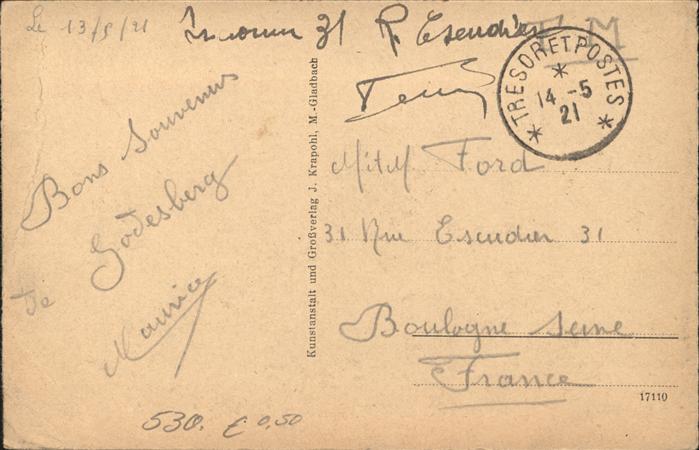 Le 13/5/21
Inconnu 31 R. Escudier
F M
TRESOR ET POSTES
14 -5
21
Bons Souvenirs
de Godesberg
Maurice
Kunstanstalt und Großverlag J. Krapohl, M.-Gladbach
M et M Ford
31 Rue Escudier 31
Boulogne Seine
France
17110
530. € 0,50